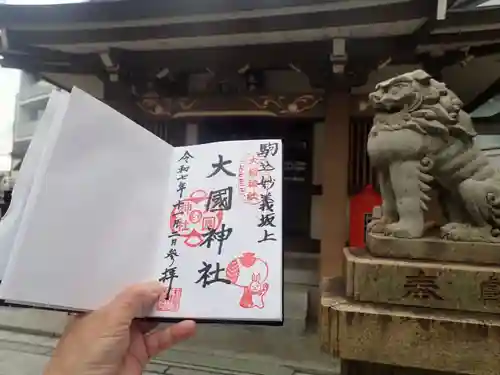 駒込妙義坂上
大國神社
令和七年十一月二日参拝
奉